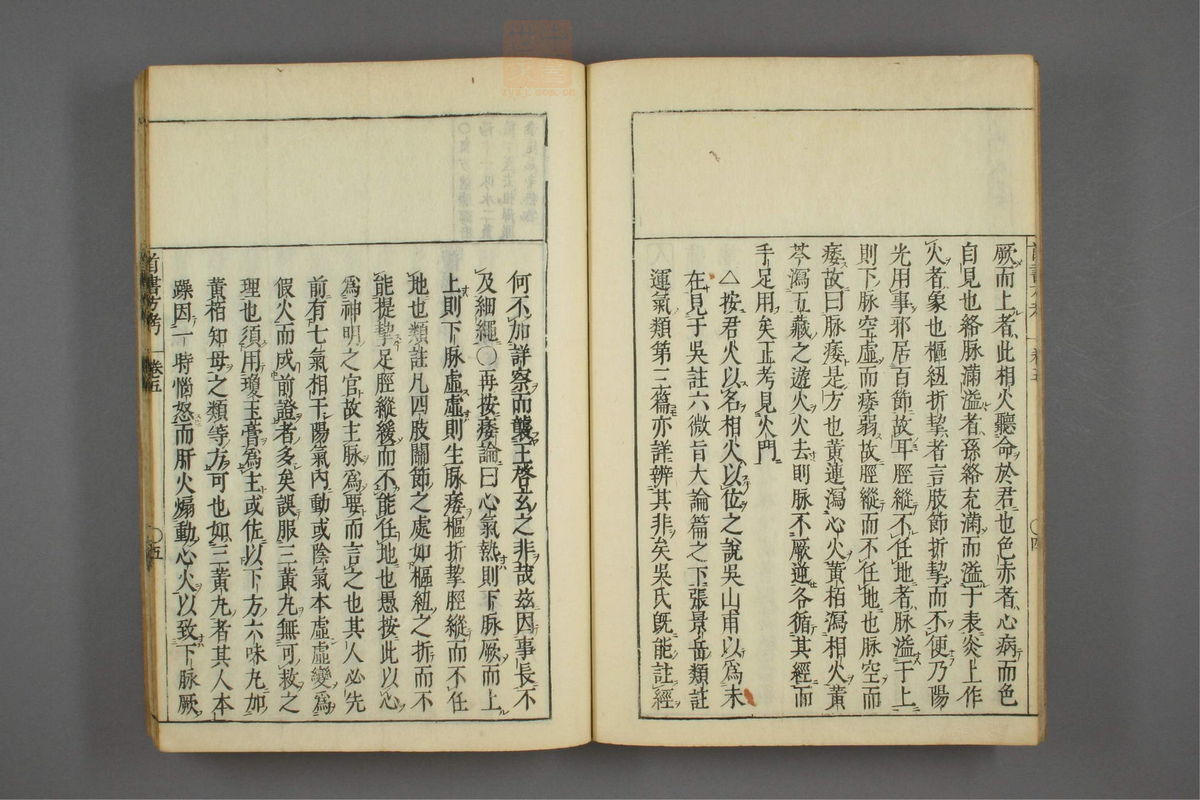 厥而上者此相火聽命於君也色赤者心病而色
自見也絡脉滿溢者孫絡充滿而溢于表炎上作
火者象也樞紐折挈者言肢節折挈而不便乃陽
光用事邪居百節故耳脛縱不任地者脉溢于上
則下脉空虛而痿弱故脛縱而不任地也脉空而
痿故曰脉痿是方也黃連瀉心火黃栢瀉相火黃
芩瀉五藏之遊火火去則脉不厥逆各循其經而
手足用矣正考見火門
△按君火以名相火以位之說吳山甫以爲未
在見于吳註六微旨大論篇之下張景岳類註
運氣類第三篇亦詳辨其非矣吳氏旣能註經
何不加詳察而襲王啓玄之非哉茲因事長不
及細繩〇再按痿論曰心氣熱則下脉厥而上
上則下脉虛虛則生脉痿樞折挈脛縱而不任
地也類註凡四肢關節之處如樞紐之折而不
能提挈足脛縱緩而不能任地也愚按此以心
爲神明之官故主脉爲要而言之也其人必先
前有七氣相干陽氣內動或陰氣本虛虛變爲
假火而成前證者多矣誤服三黃丸無可救之
理也須用瓊玉膏爲主或佐以下方六味丸加
黃栢知母之類等方可也如三黃丸者其人本
躁因一時惱怒而肝火煽動心火以致下脉厥
首書方考
卷五
〇五
〇四